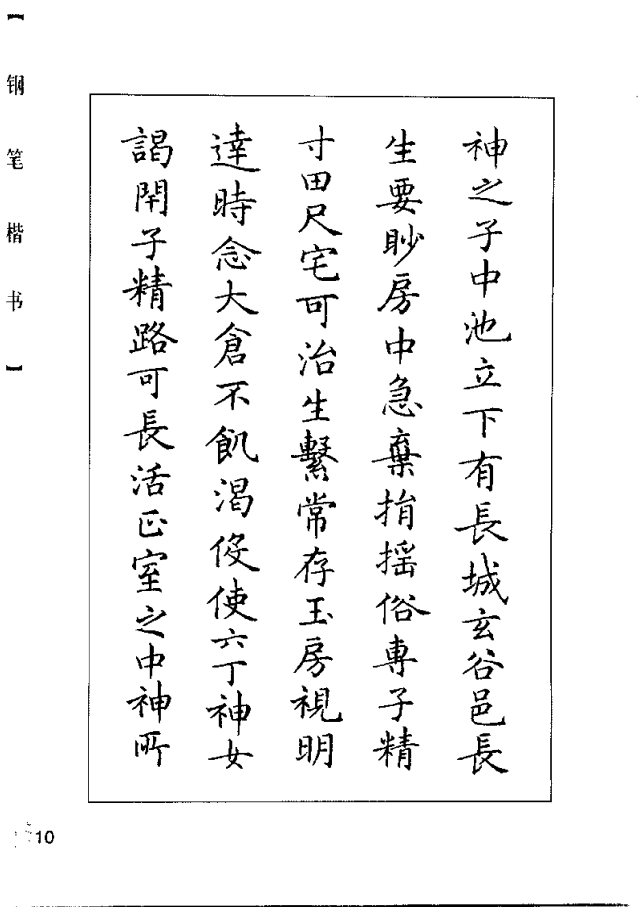 【钢笔楷书】
神之子中池立下有長城玄谷邑長
生要眇房中急棄捐搖俗專子精
寸田尺宅可治生繫常存玉房視明
達時念大倉不飢渴役使六丁神女
謁閇子精路可長活正室之中神所
10